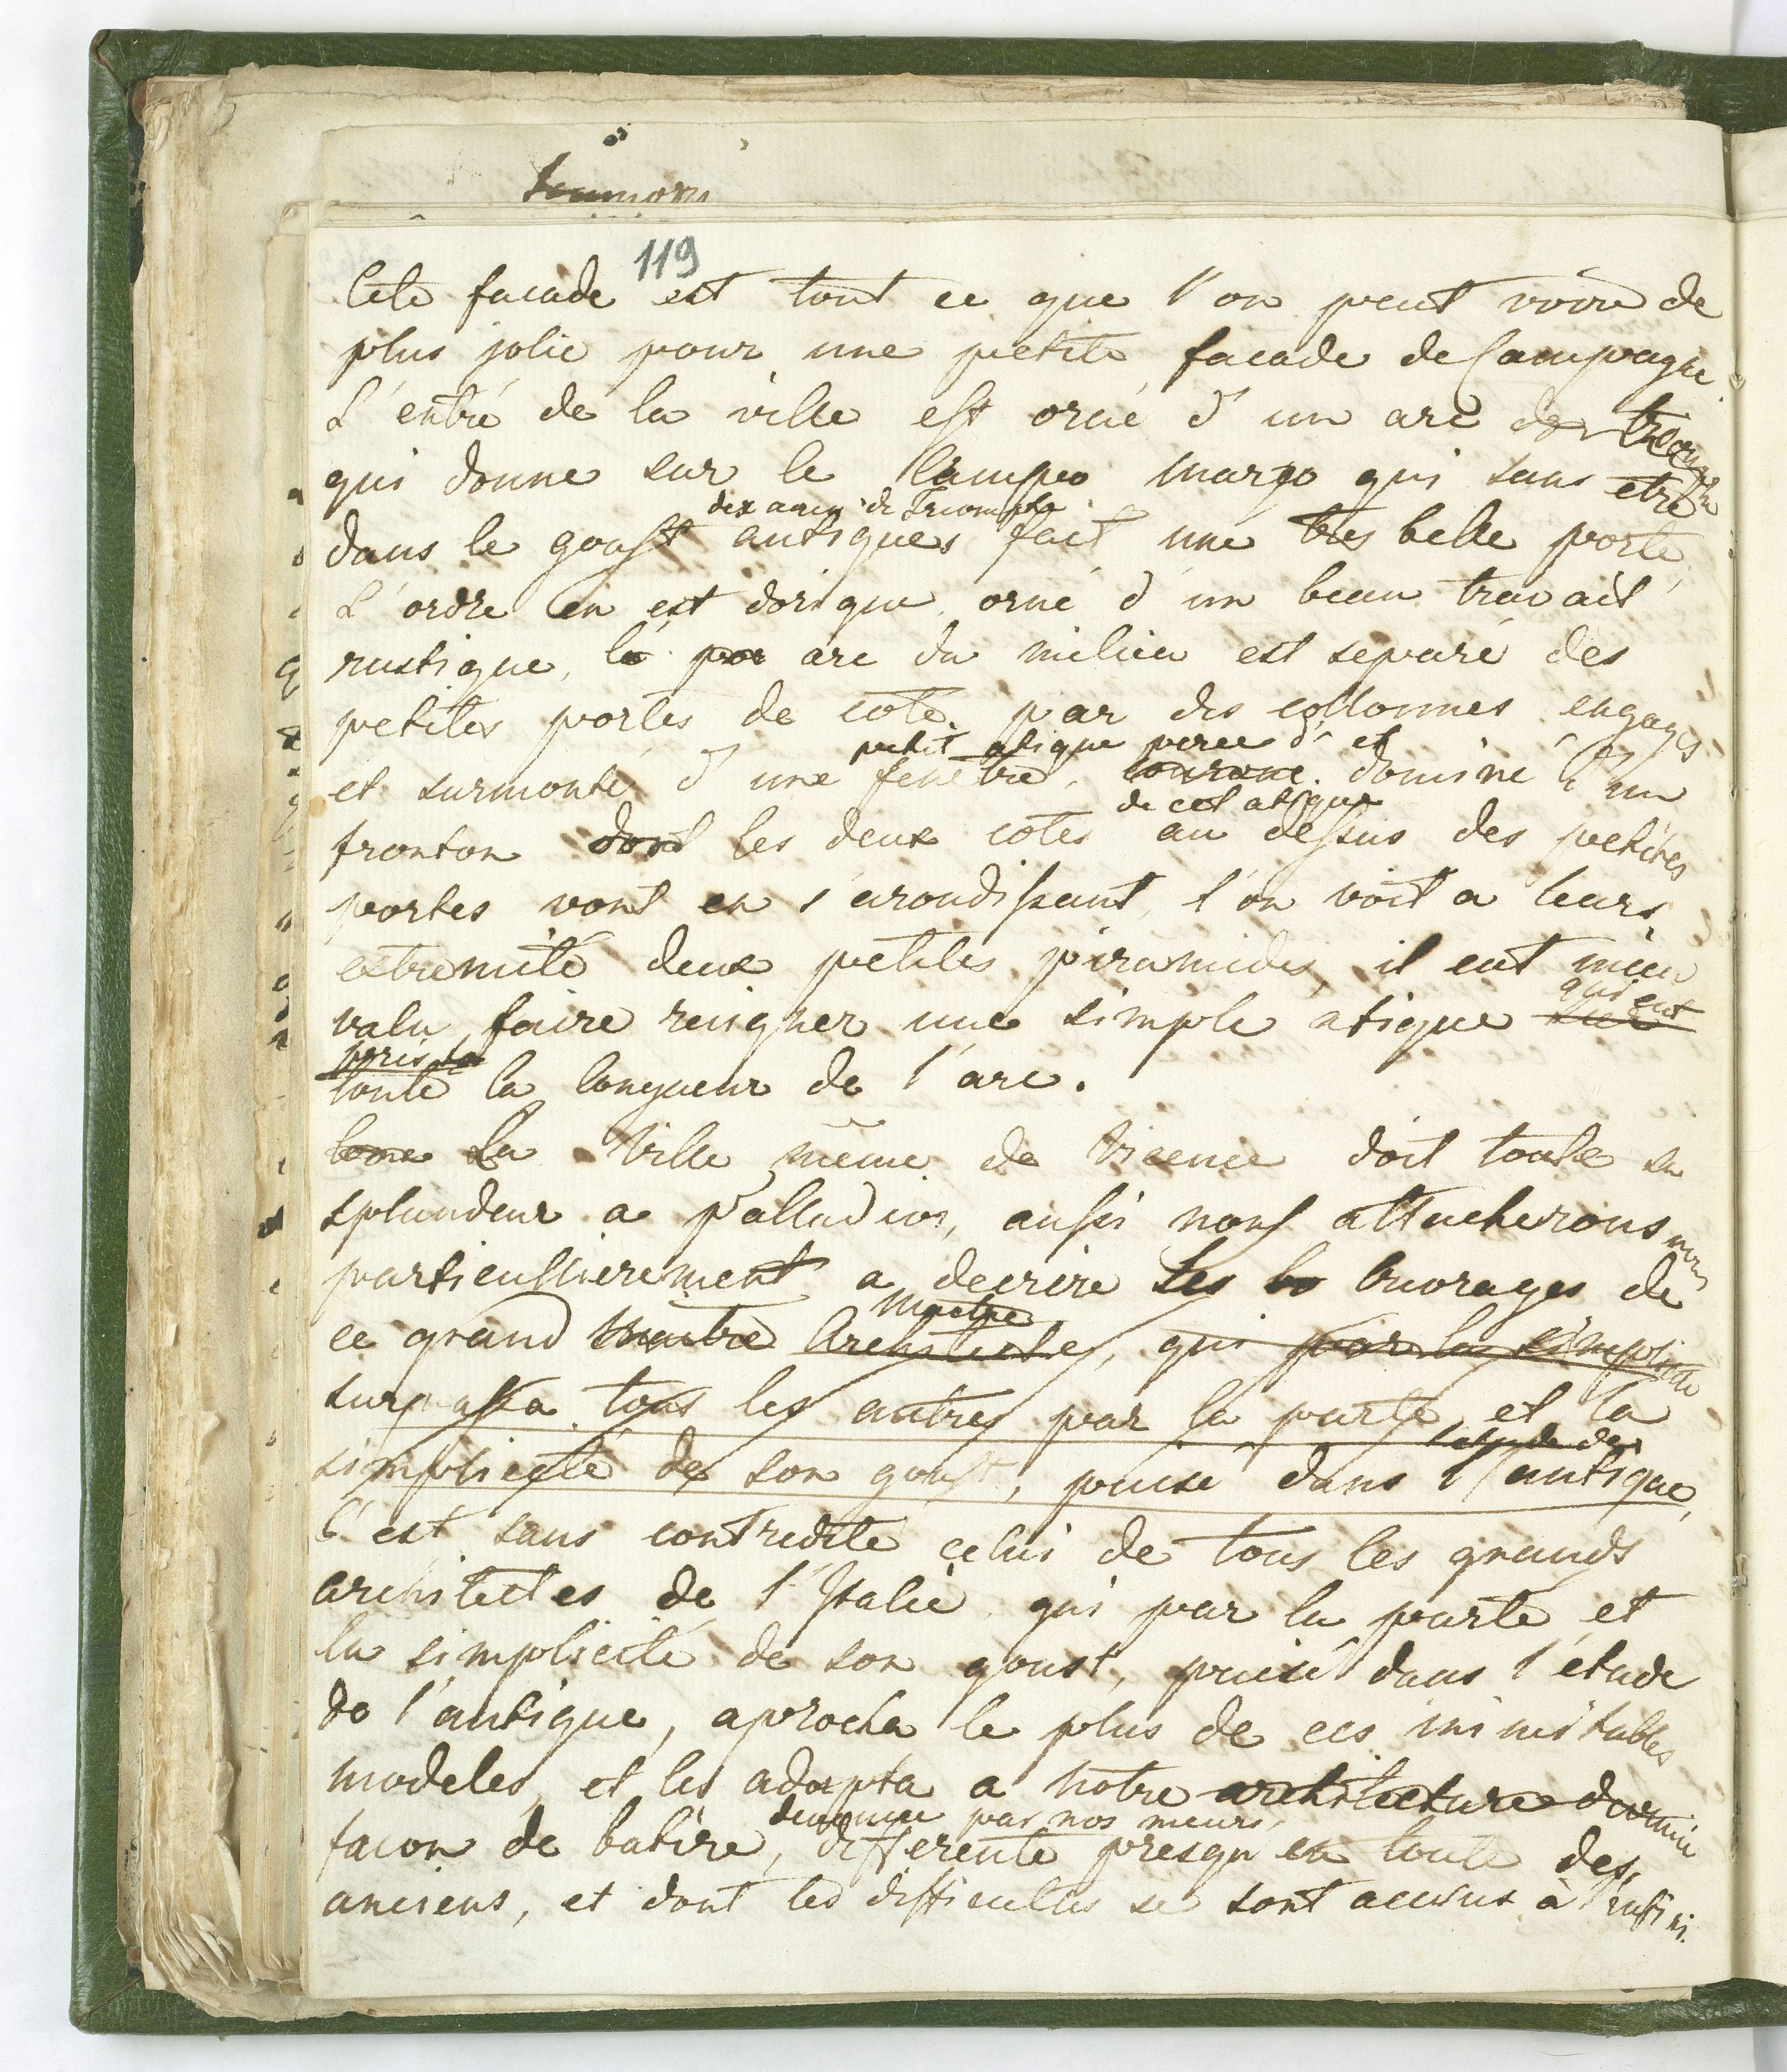 119
Cete facade est tout ce que l'on peut voire de
plus jolie pour une petite facade de Campagne.
L'entré de la ville est orné d'un arc de
qui donne sur le Campo marzo qui sans etre
des arcs de Triomphe
dans le goust antiques fait une tres belle porte,
L'ordre en est dorique, orné d'un beau travail
rustique, le por arc du milieu est separé des
petites portes de coté. par des collonnes engagés
petit atique percé d' et
et surmonté d'une fenêtre, couronné. dominé d'un
de cet atique
fronton dont les deux cotés au dessus des petites
portes vont en s'arondissant, l'on voit a leurs
extremité deux petites piramides, il eut mieu
qui eut
valu faire reigner une simple atique sur
pris la
toute la longueur de l'arc.
La Ville même de Vicence doit toute sa
splandeur a Palladios, aussi nous attacherons nous
particullierement a decrire Les bo Ouvrages de
maitre
ce grand Maitre Architecte, qui par la simplicité
surpassa tous les autres par la purté, et la
l'etude de
simplicité de son goust, puisé dans l'antique,
C'est sans contredite celui de tous les grands
architectes de l'Italie qui par la purté et
la simplicité de son goust, puisé dans l'étude
de l'antique, aprocha le plus de ces inimitables
modeles, et les adapta a notre architecture devenue
devenue par nos meurs,
facon de batire, differente presqu en toute des
anciens, et dont les difficultés se sont accrus à l'infini.